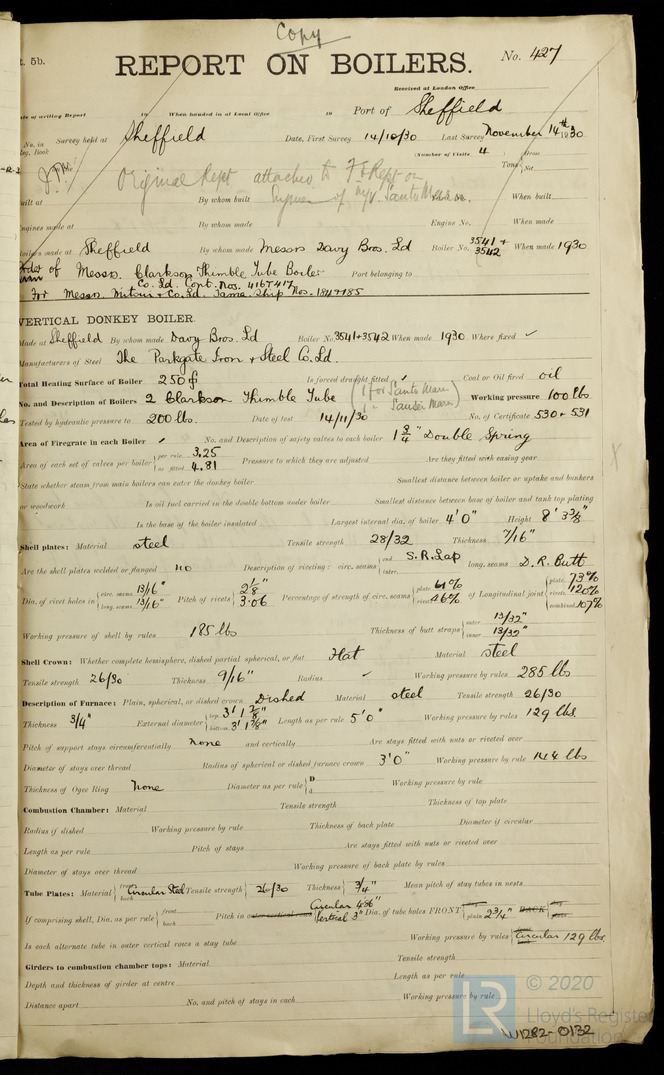 Copy
t. 5b.
REPORT ON BOILERS.
No. 427
Received at London Office
te of writing Report 19 When handed in at Local Office 19 Port of Sheffield
No. in Survey held at Sheffield Date, First Survey 14/10/30 Last Survey November 14th 1930
Reg. Book
(Number of Visits 4
Gross
Tons
Net
Original Rept attached to F.E. Rept on
built at By whom built When built
Engines made at By whom made Engine No. When made
Boilers made at Sheffield By whom made Messrs Davy Bros. Ld Boiler No. 3541 + 3542 When made 1930
Order of Messrs. Clarkson Thimble Tube Boiler Port belonging to
Co. Ld. Cont. Nos. 416 & 417
For Messrs. Mitsui & Co. Ld. Tama Ship Nos. 184 & 185
VERTICAL DONKEY BOILER.
Made at Sheffield By whom made Davy Bros. Ld Boiler No. 3541+3542 When made 1930 Where fixed ✓
Manufacturers of Steel The Parkgate Iron & Steel Co. Ld.
Total Heating Surface of Boiler 250 ☐ Is forced draught fitted ✓ Coal or Oil fired oil
No. and Description of Boilers 2 Clarkson Thimble Tube (1 for Santo Maru Working pressure 100 lbs
Tested by hydraulic pressure to 200 lbs. Date of test 14/11/30 No. of Certificate 530 + 531
Area of Firegrate in each Boiler ✓ No. and Description of safety valves to each boiler 1 3/4" Double Spring
Area of each set of valves per boiler per rule 3.25 as fitted 4.81 Pressure to which they are adjusted Are they fitted with easing gear
State whether steam from main boilers can enter the donkey boiler Smallest distance between boiler or uptake and bunkers
or woodwork Is oil fuel carried in the double bottom under boiler Smallest distance between base of boiler and tank top plating
Is the base of the boiler insulated Largest internal dia. of boiler 4' 0" Height 8' 3 3/8"
Shell plates: Material steel Tensile strength 28/32 Thickness 7/16"
Are the shell plates welded or flanged no Description of riveting: circ. seams end S.R. Lap inter. long. seams D.R. Butt
Dia. of rivet holes in circ. seams 13/16" long. seams 13/16" Pitch of rivets 2 1/8" 3.06 Percentage of strength of circ. seams plate 61% rivets 46% of Longitudinal joint plate 73% rivets 120% combined 107%
Working pressure of shell by rules 185 lbs Thickness of butt straps outer 13/32" inner 13/32"
Shell Crown: Whether complete hemisphere, dished partial spherical, or flat Flat Material steel
Tensile strength 26/30 Thickness 9/16" Radius ✓ Working pressure by rules 285 lbs
Description of Furnace: Plain, spherical, or dished crown Dished Material steel Tensile strength 26/30
Thickness 3/4" External diameter top 3' 1 7/8" bottom 3' 1 7/8" Length as per rule 5' 0" Working pressure by rules 129 lbs
Pitch of support stays circumferentially none and vertically Are stays fitted with nuts or riveted over
Diameter of stays over thread Radius of spherical or dished furnace crown 3' 0" Working pressure by rule 144 lbs
Thickness of Ogee Ring None Diameter as per rule D d Working pressure by rule
Combustion Chamber: Material Tensile strength Thickness of top plate
Radius if dished Working pressure by rule Thickness of back plate Diameter if circular
Length as per rule Pitch of stays Are stays fitted with nuts or riveted over
Diameter of stays over thread Working pressure of back plate by rules
Tube Plates: Material front back Circular Steel Tensile strength 26/30 Thickness 3/4" Mean pitch of stay tubes in nests
If comprising shell, Dia. as per rule front back Pitch in outer vertical rows Circular Vertical 3" Dia. of tube holes FRONT stay plain 2 3/4" BACK stay plain
Is each alternate tube in outer vertical rows a stay tube Working pressure by rules Circular 129 lbs
Girders to combustion chamber tops: Material Tensile strength
Depth and thickness of girder at centre Length as per rule
Distance apart No. and pitch of stays in each Working pressure by rule
LR © 2020
Lloyd's Register
Foundation
W1282-0132